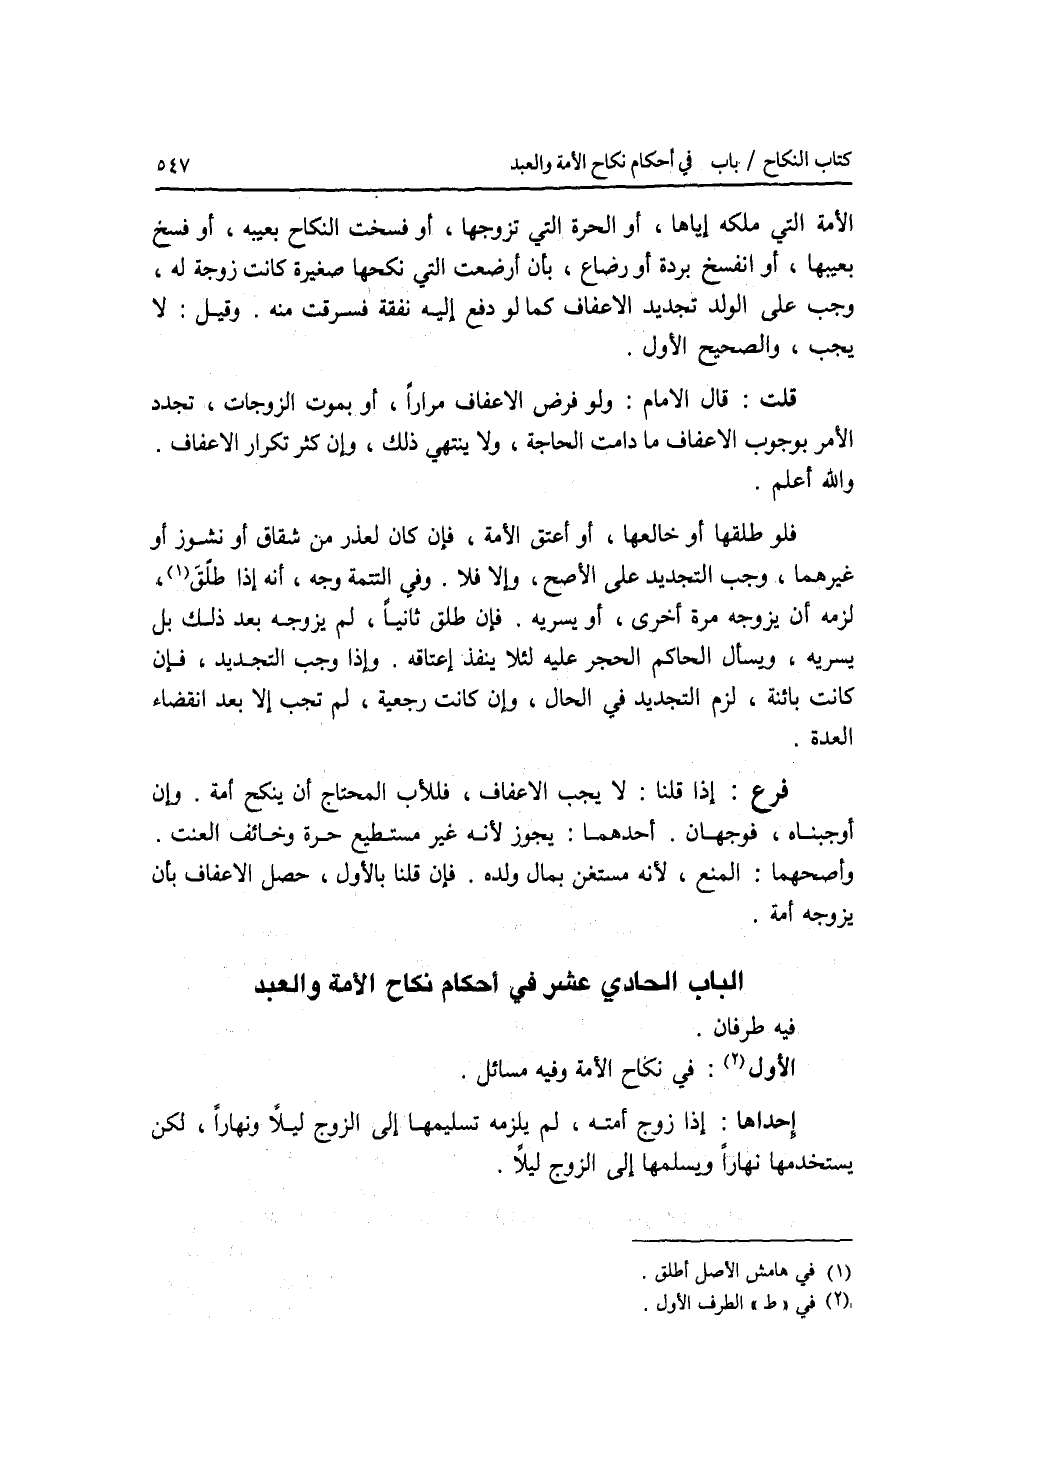 كتاب النكاح / باب في أحكام نكاح الأمة والعبد ٥٤٧
الأمة التي ملكه إياها ، أو الحرة التي تزوجها ، أو فسخت النكاح بعيبه ، أو فسخ
بعيبها ، أو انفسخ بردة أو رضاع ، بأن أرضعت التي نكحها صغيرة كانت زوجة له ،
وجب على الولد تجديد الاعفاف كما لو دفع إليه نفقة فسرقت منه . وقيل : لا
يجب ، والصحيح الأول .
قلت : قال الامام : ولو فرض الاعفاف مراراً ، أو بموت الزوجات ، تجدد
الأمر بوجوب الاعفاف ما دامت الحاجة ، ولا ينتهي ذلك ، وإن كثر تكرار الاعفاف .
والله أعلم .
فلو طلقها أو خالعها ، أو أعتق الأمة ، فإن كان لعذر من شقاق أو نشوز أو
غيرهما ، وجب التجديد على الأصح ، وإلا فلا . وفي التتمة وجه ، أنه إذا طلَّقَ(١)،
لزمه أن يزوجه مرة أخرى ، أو يسريه . فإن طلق ثانياً ، لم يزوجه بعد ذلك بل
يسريه ، ويسأل الحاكم الحجر عليه لئلا ينفذ إعتاقه . وإذا وجب التجديد ، فإن
كانت بائنة ، لزم التجديد في الحال ، وإن كانت رجعية ، لم تجب إلا بعد انقضاء
العدة .
فرع : إذا قلنا : لا يجب الاعفاف ، فللأب المحتاج أن ينكح أمة . وإن
أوجبناه ، فوجهان . أحدهما : يجوز لأنه غير مستطيع حرة وخائف العنت .
وأصحهما : المنع ، لأنه مستغن بمال ولده . فإن قلنا بالأول ، حصل الاعفاف بأن
يزوجه أمة .
الباب الحادي عشر في أحكام نكاح الأمة والعبد
فيه طرفان .
الأول(٢) : في نكاح الأمة وفيه مسائل .
إحداها : إذا زوج أمته ، لم يلزمه تسليمها إلى الزوج ليلاً ونهاراً ، لكن
يستخدمها نهاراً ويسلمها إلى الزوج ليلاً .
(١) في هامش الأصل أطلق .
(٢) في « ط » الطرف الأول .